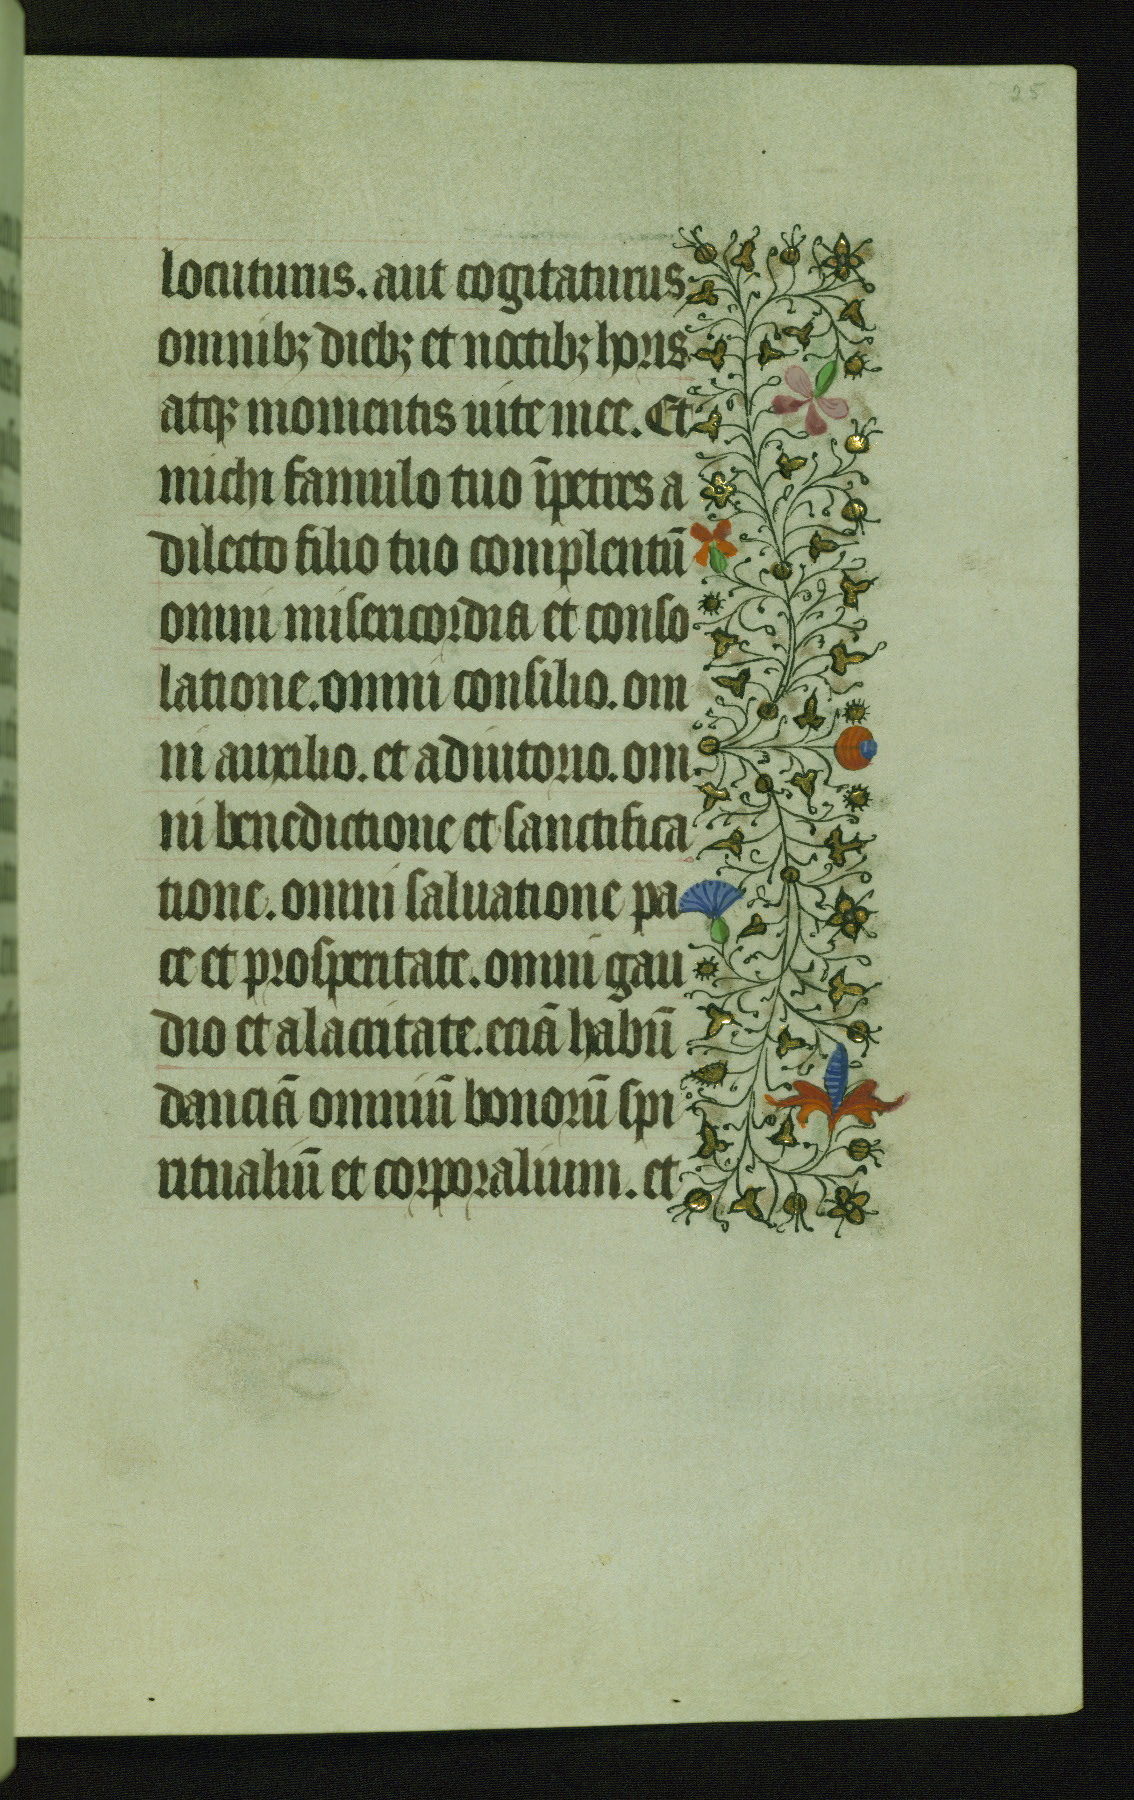 25
locuturus. aut cogitaturus
omnibꝫ diebꝫ et noctibꝫ horis
atqꝫ momentis uite mee. Et
michi famulo tuo īpetres a
dilecto filio tuo complentū
omni misericordia et conso
latione. omni consilio. om
ni auxilio. et adiutorio. om
ni benedictione et sanctifica
tione. omni saluatione pa
ce et prosperitate. omni gau
dio et alacritate. eciā habū
danciā omniū bonorū spi
ritualiū et corporalium. et